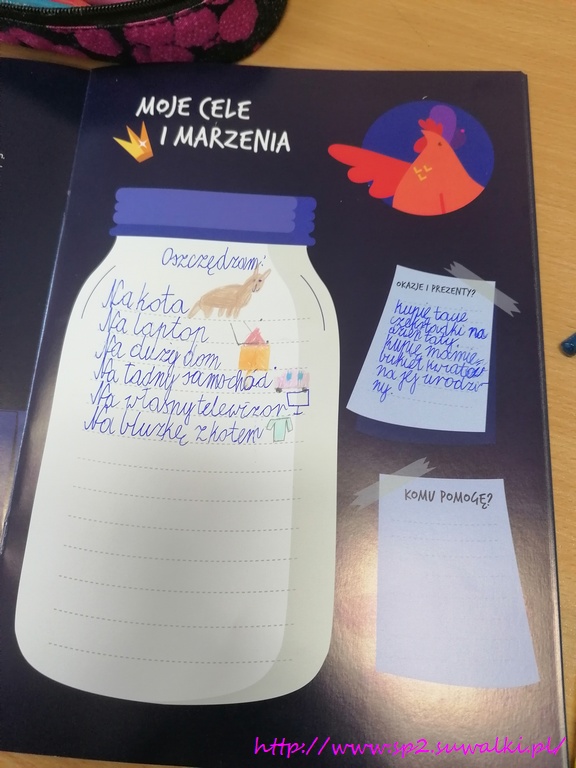 MOJE CELE
I MARZENIA
Oszczędzam:
Na kota
Na laptop
Na duży dom
Na ładny samochód.
Na własny telewizor
Na bluzkę z kotem
OKAZJE I PREZENTY?
kupię tacie
czekoladki na
dzień taty.
kupię mamie
bukiet kwiatów
na jej urodzi
ny.
KOMU POMOGĘ?
http://www.sp2.suwalki.pl/